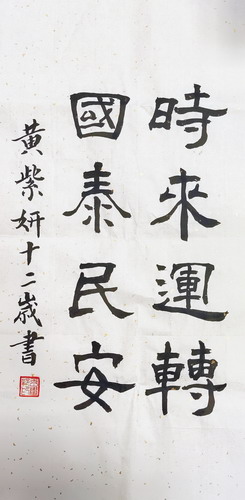 時來運轉
國泰民安
黃紫妍十二歲書